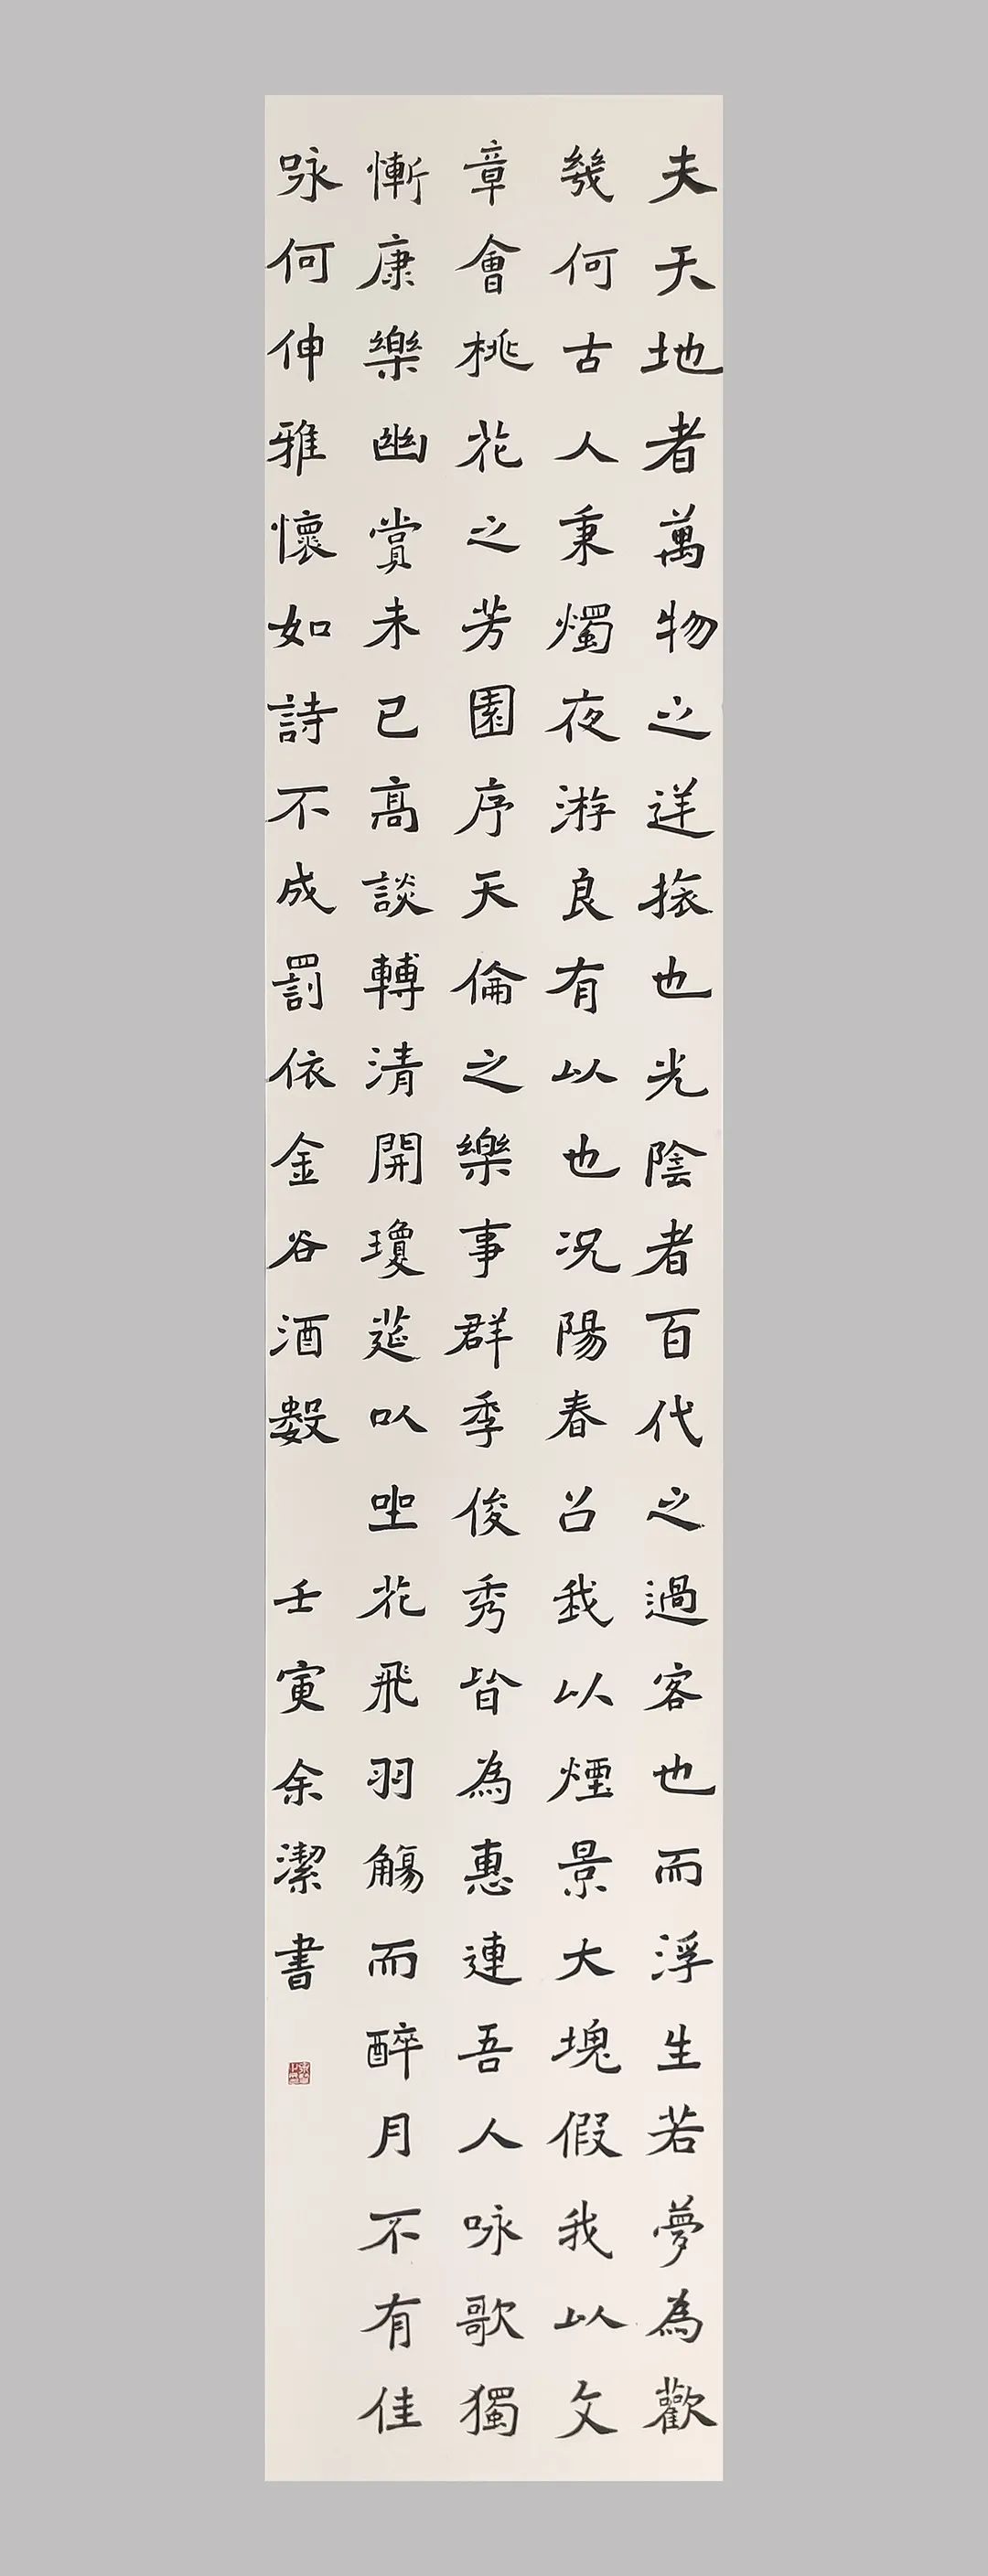 夫天地者萬物之逆旅也光陰者百代之過客也而浮生若夢為歡
幾何古人秉燭夜游良有以也況陽春召我以煙景大塊假我以文
章會桃花之芳園序天倫之樂事群季俊秀皆為惠連吾人咏歌獨
慚康樂幽賞未已高談轉清開瓊筵以坐花飛羽觴而醉月不有佳
咏何伸雅懷如詩不成罰依金谷酒數
壬寅余潔書